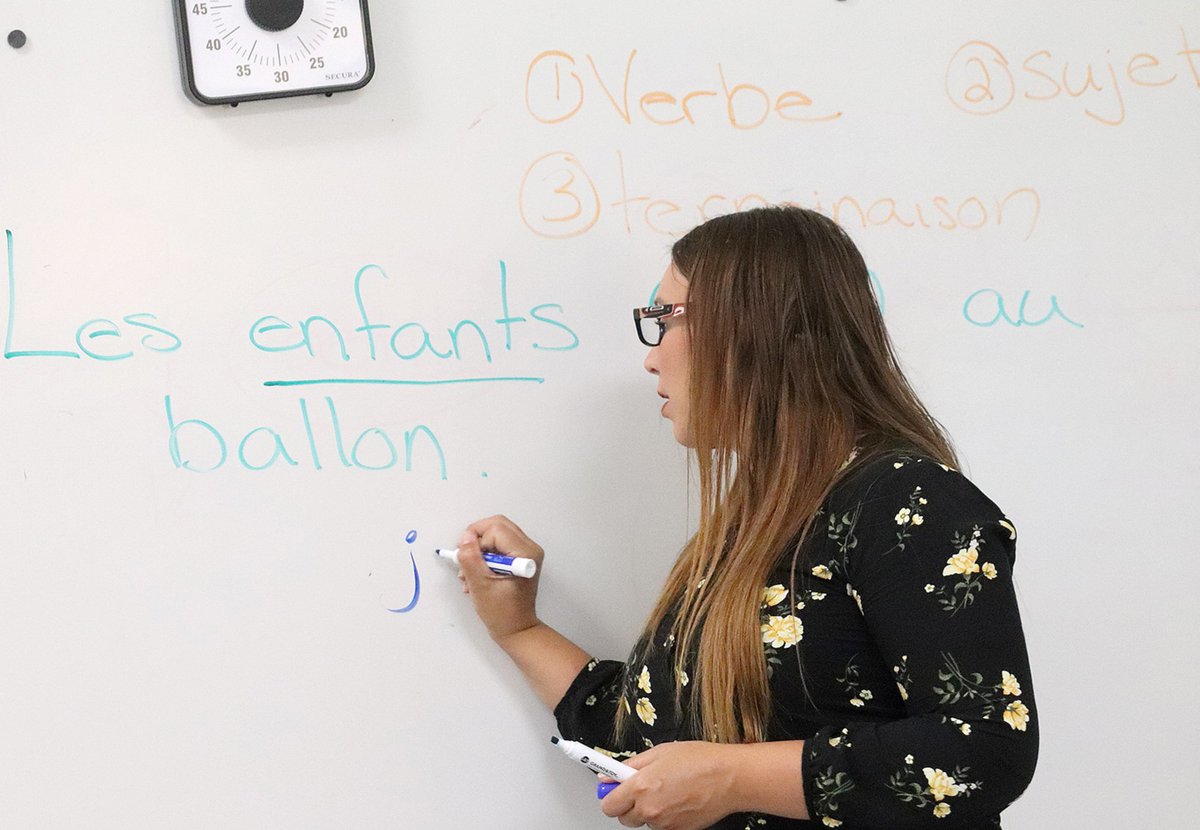 45
40
35
30
25
20
SECURA
① Verbe ② Sujet
③ terminaison
Les enfants au
ballon.
j